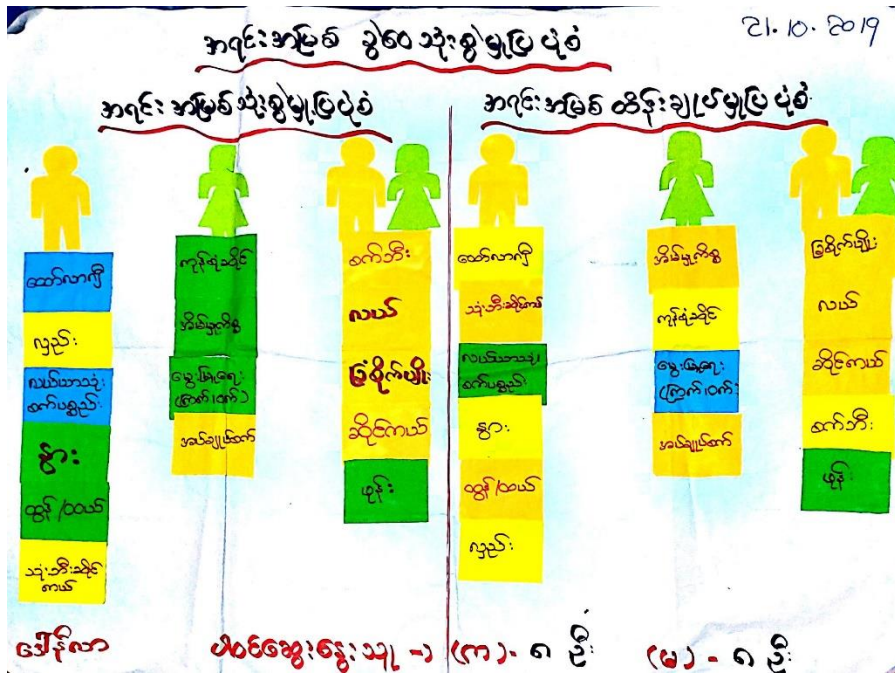 21.10.2019
အရင်းအမြစ် ခွဲဝေသုံးစွဲမှုပြပုံစံ
အရင်းအမြစ်သုံးစွဲမှုပြပုံစံ
ထော်လာဂျီ
လှည်း
လယ်ယာသုံး
စက်ပစ္စည်း
နွား
ထွန်/ထယ်
သုံးဘီးဆိုင်
ကယ်
ကုန်စုံဆိုင်
အိမ်မှုကိစ္စ
မွေးမြူရေး
(ကြက်၊ဝက်)
အပ်ချုပ်စက်
စက်ဘီး
လယ်
ခြံစိုက်ပျိုး
ဆိုင်ကယ်
ဖုန်း
အရင်းအမြစ် ထိန်းချုပ်မှုပြပုံစံ
ထော်လာဂျီ
သုံးဘီးဆိုင်ကယ်
လယ်ယာသုံး
စက်ပစ္စည်း
နွား
ထွန်/ထယ်
လှည်း
အိမ်မှုကိစ္စ
ကုန်စုံဆိုင်
မွေးမြူရေး
(ကြက်၊ဝက်)
အပ်ချုပ်စက်
ခြံစိုက်ပျိုး
လယ်
ဆိုင်ကယ်
စက်ဘီး
ဖုန်း
ဒေါန်လာ
ပါဝင်ဆွေးနွေးသူ -၊ (က) - ၈ ဦး (မ) - ၈ ဦး